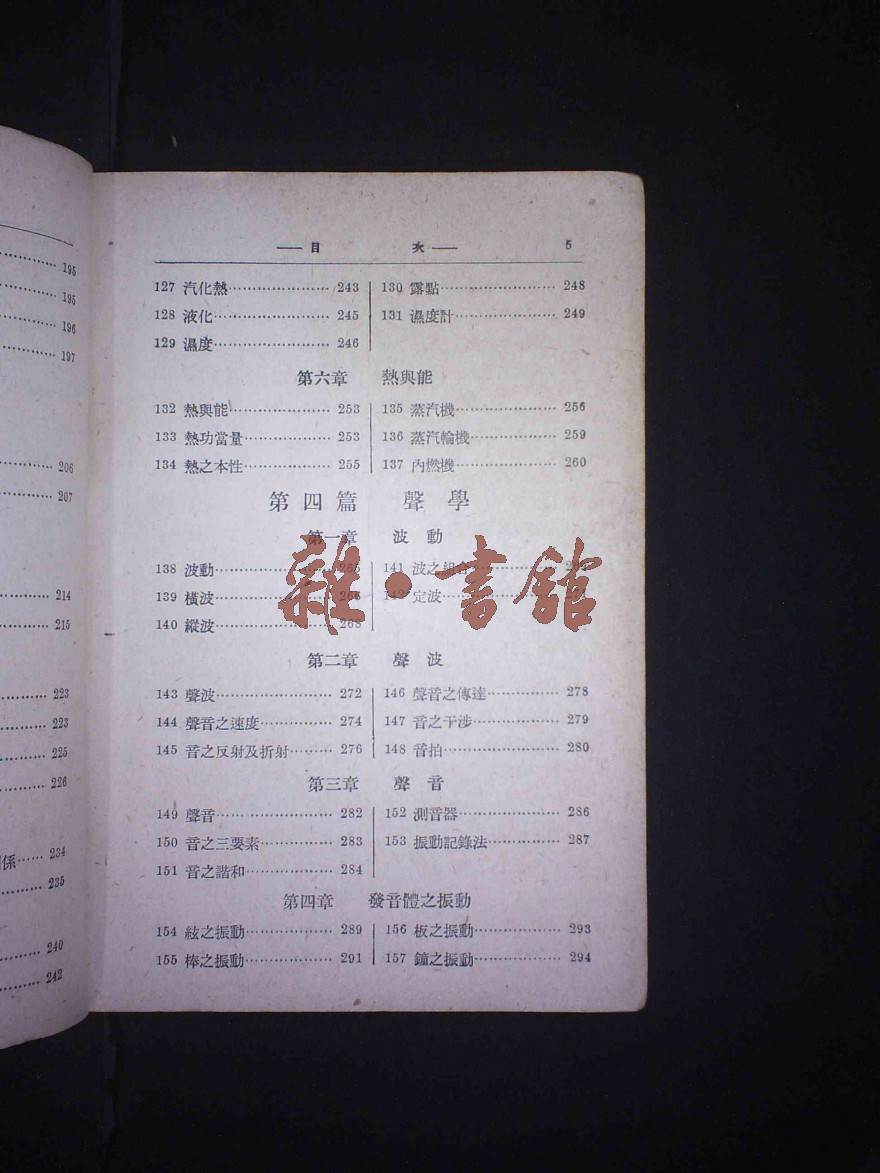 195
195
196
197
206
207
214
215
223
223
225
226
係…… 234
235
240
242
—— 目 次 —— 5
127 汽化熱………………… 243
128 液化…………………… 245
129 濕度…………………… 246
130 露點…………………… 248
131 濕度計………………… 249
第六章 熱與能
132 熱與能………………… 253
133 熱功當量……………… 253
134 熱之本性……………… 255
135 蒸汽機………………… 256
136 蒸汽輪機……………… 259
137 內燃機………………… 260
第四篇 聲學
第一章 波動
138 波動…………………… 265
139 橫波…………………… 266
140 縱波…………………… 268
141 波之組合
142 定波
雜·書館
第二章 聲波
143 聲波…………………… 272
144 聲音之速度…………… 274
145 音之反射及折射……… 276
146 聲音之傳達…………… 278
147 音之干涉……………… 279
148 音拍…………………… 280
第三章 聲音
149 聲音…………………… 282
150 音之三要素…………… 283
151 音之諧和……………… 284
152 測音器………………… 286
153 振動記錄法…………… 287
第四章 發音體之振動
154 絃之振動……………… 289
155 棒之振動……………… 291
156 板之振動……………… 293
157 鐘之振動……………… 294